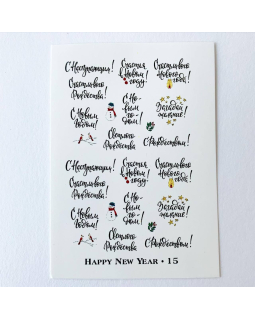 С Наступающим!
Счастья
в Новом
году!
Счастливого
Нового
года!
Счастливого
Рождества!
С Новым
годом!
С Но-
вым
го-
дом!
Загадай
желание!
Светлого
Рождества
С Рождеством!
С Наступающим!
Счастья
в Новом
году!
Счастливого
Нового
года!
Счастливого
Рождества!
С Новым
годом!
С Но-
вым
го-
дом!
Загадай
желание!
Светлого
Рождества
С Рождеством!
HAPPY NEW YEAR • 15